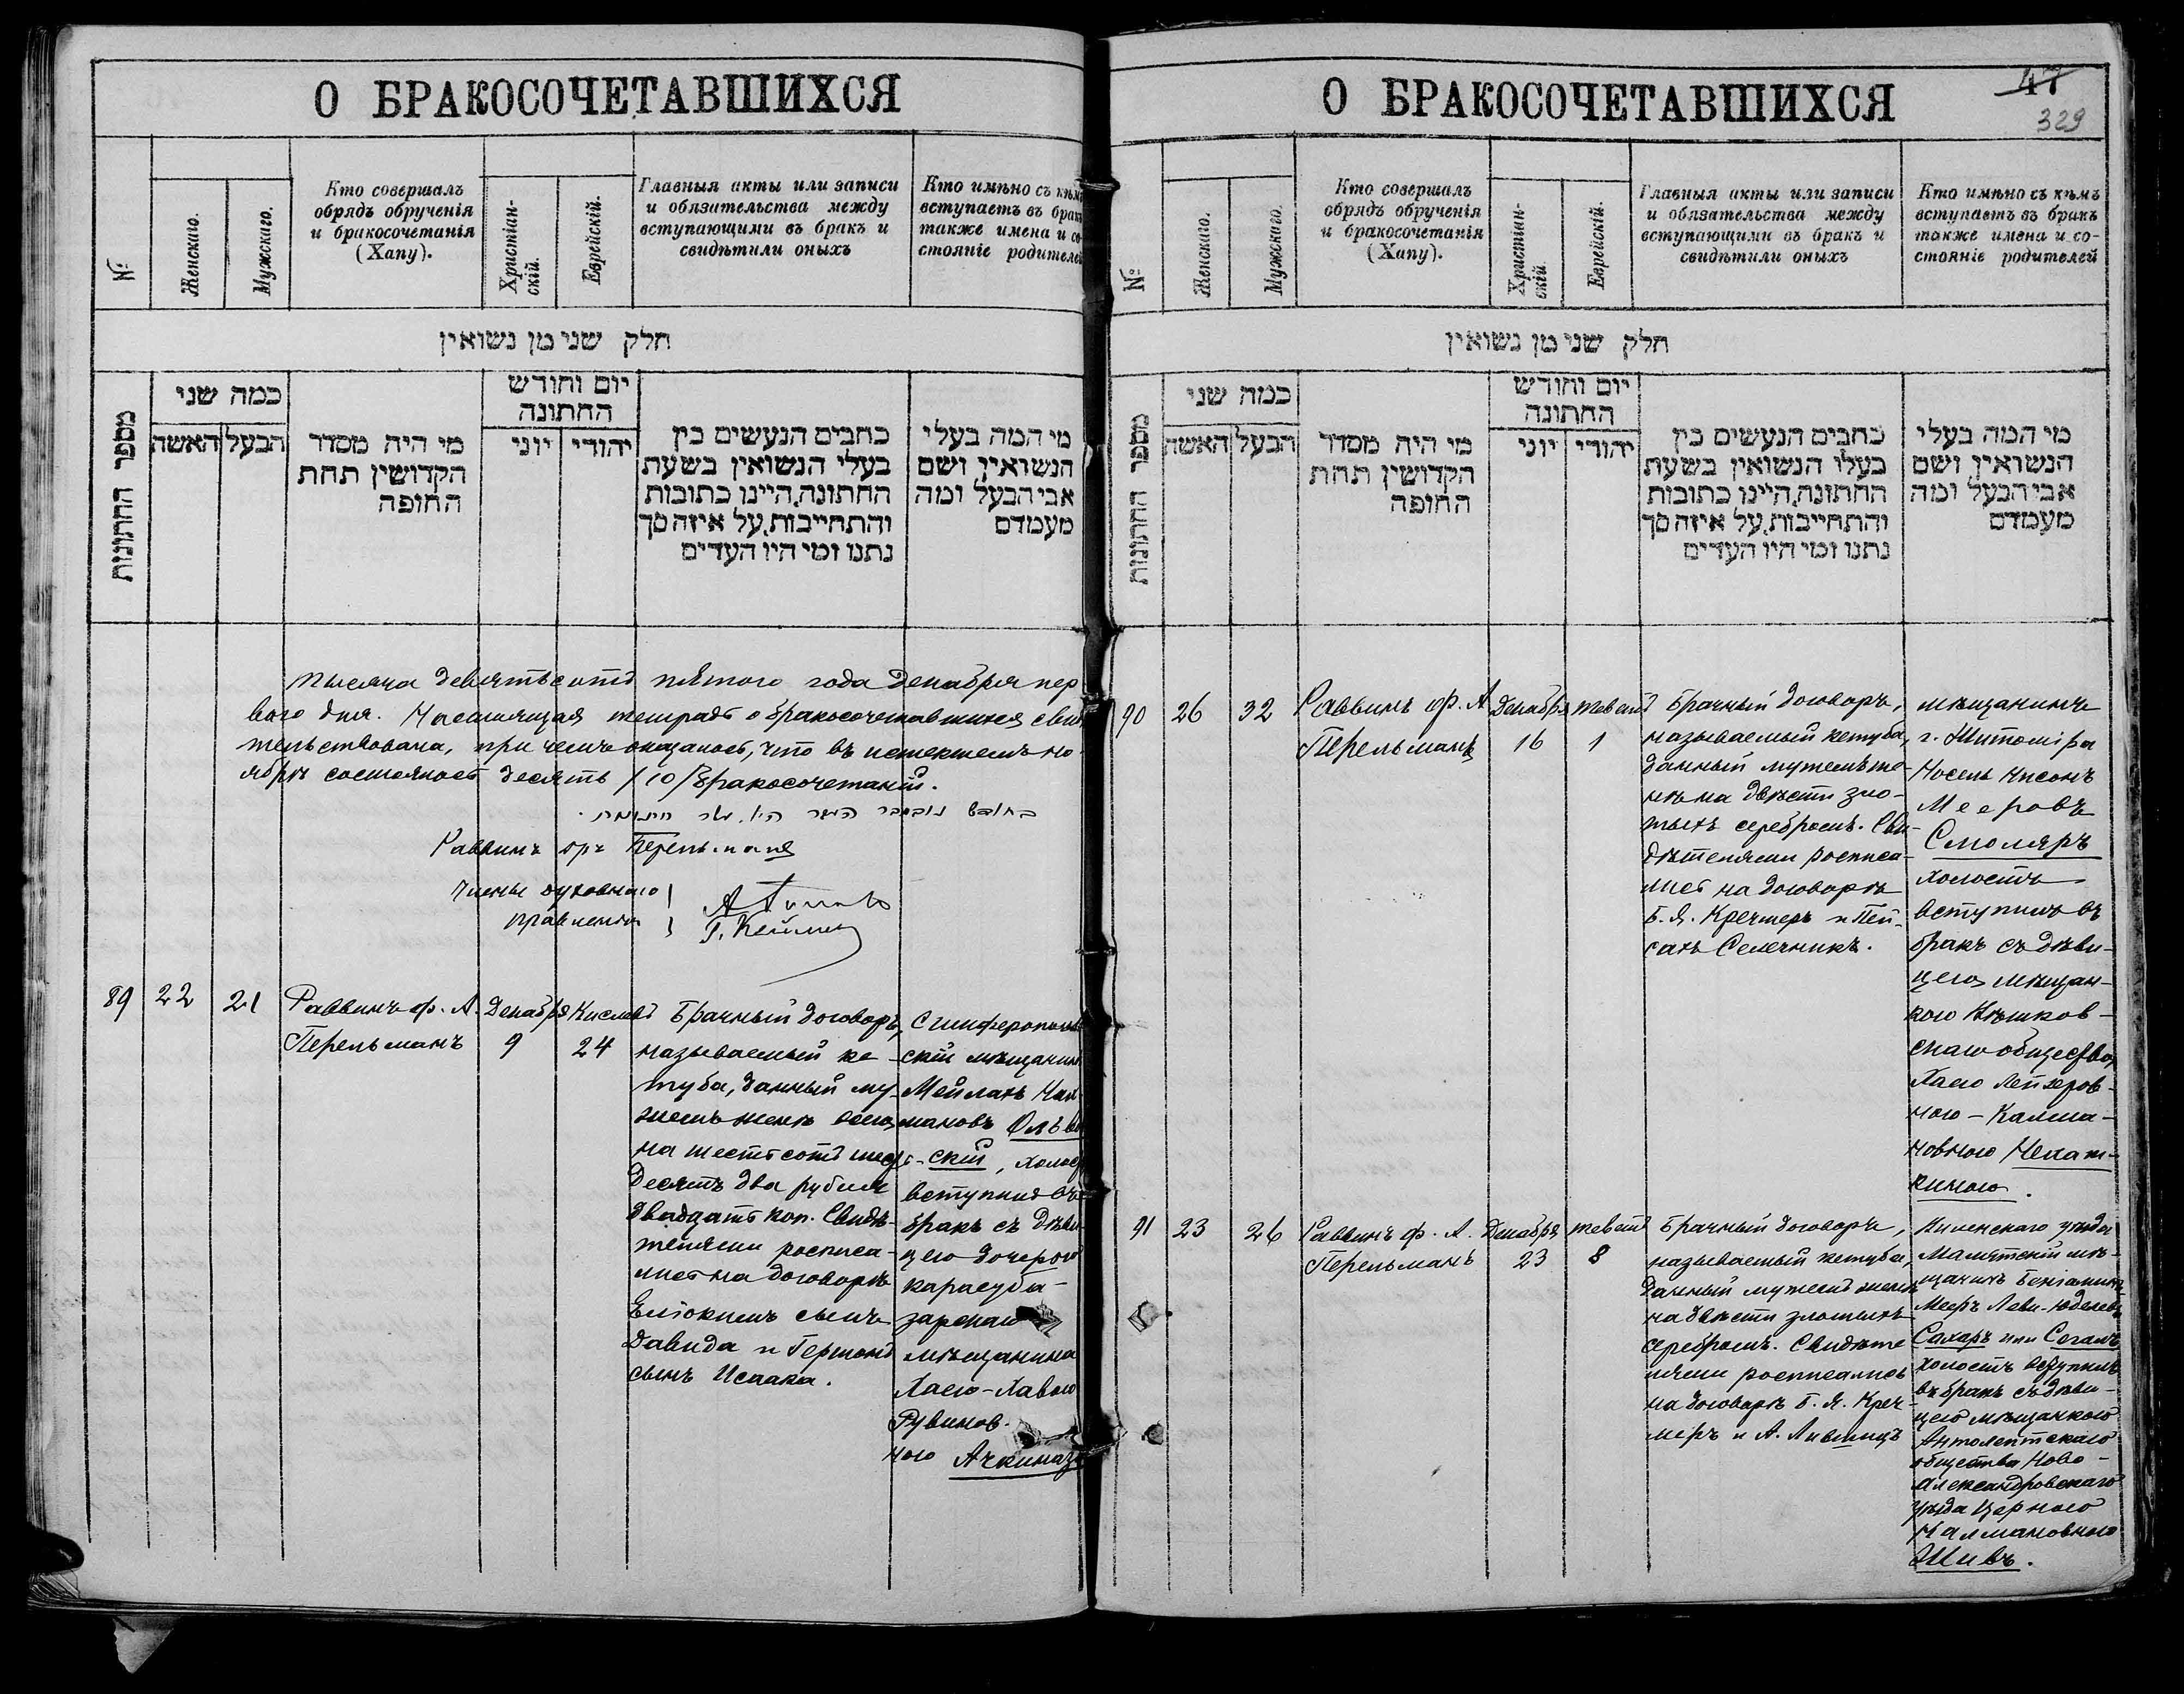 О БРАКОСОЧЕТАВШИХСЯ
№
Женскаго.
Мужскаго.
Кто совершалъ
обрядъ обрученія
и бракосочетанія
(Хапу).
Христіан-
скій.
Еврейскій.
Главныя акты или записи
и обязательства между
вступающими въ бракъ и
свидѣтили оныхъ
Кто имѣно съ кѣмъ
вступаетъ въ бракъ
также имена и со-
стояніе родителей
חלק שני מן נשואין
מספר החתונות
כמה שני
הבעל
האשה
מי היה מסדר
הקדושין תחת
החופה
יום וחודש
החתונה
יהודי
יוני
כחבים הנעשים בין
בעלי הנשואין בשעת
החתונה, היינו כתובות
והתחייבות, על איזה סך
נתנו ומי היו העדים
מי המה בעלי
הנשואין ושם
אבי הבעל ומה
מעמדם
тысяча девятьсотъ пятого года Декабря пер
ваго дня. Настоящая тетрадь о бракосочетавшихся свидѣ
тельствована, при чемъ оказалось, что въ истекшемъ но-
ябрѣ состоялось десять /10/ бракосочетаній.
Раввинъ Перельманъ
Члены духовнаго
правленія
89
22
21
Раввинъ ф. А.
Перельманъ
Декабря
9
Кислевъ
24
Брачный договоръ,
называемый ке-
туба, данный му-
жемъ женѣ своей
на шестьсотъ шесть
десятъ два рубля
двадцать коп. Свидѣ-
телями росписа-
лись на договорѣ
сынъ
Давида и
сынъ Исаака.
Симферополь
скій мѣщанинъ
Мейлахъ Нах
мановъ
скій, холостъ
вступилъ въ
бракъ съ дѣви-
цею дочерью
карасуба-
зарскаго
мѣщанина
Хаею-Хавою
Рувинов-
ною Ачкинази
О БРАКОСОЧЕТАВШИХСЯ
47
329
№
Женскаго.
Мужскаго.
Кто совершалъ
обрядъ обрученія
и бракосочетанія
(Хапу).
Христіан-
скій.
Еврейскій.
Главныя акты или записи
и обязательства между
вступающими въ бракъ и
свидѣтили оныхъ
Кто имѣно съ кѣмъ
вступаетъ въ бракъ
также имена и со-
стояніе родителей
חלק שני מן נשואין
מספר החתונות
כמה שני
הבעל
האשה
מי היה מסדר
הקדושין תחת
החופה
יום וחודש
החתונה
יהודי
יוני
כחבים הנעשים בין
בעלי הנשואין בשעת
החתונה, היינו כתובות
והתחייבות, על איזה סך
נתנו ומי היו העדים
מי המה בעלי
הנשואין ושם
אבי הבעל ומה
מעמדם
90
26
32
Раввинъ ф. А.
Перельманъ
Декабря
16
теветъ
1
Брачный договоръ,
называемый кетуба,
данный мужемъ же-
нѣ на двѣсти зло-
тыхъ серебромъ. Сви-
дѣтелями росписа-
лись на договорѣ
Б. Я. Кречмеръ и Пей-
сахъ Селечникъ.
мѣщанинъ
г. Житоміра
Іосель Нисонъ
Мееровъ
Смоляръ
холостъ
вступилъ въ
бракъ съ дѣви-
цею мѣщан-
кою
скаго общества
Хаею Лейзеров-
ною-Калма-
новною Чехат-
киною.
91
23
26
Раввинъ ф. А.
Перельманъ
Декабря
23
тевета
8
Брачный договоръ,
называемый кетуба,
данный мужемъ женѣ
на двѣсти злотыхъ
серебромъ. Свидѣте
лями росписались
на договорѣ Б. Я. Креч-
меръ и А. Лившицъ
Виленскаго уѣзда
Малятскій мѣ-
щанинъ Беніаминъ
Мееръ Леви-Юделевъ
Сахаръ или Сегалъ
холостъ вступилъ
въ бракъ съ дѣви-
цею мѣщанкою
Антолептскаго
общества Ново-
Александровскаго
уѣзда Церною
Калмановною
Шивъ.